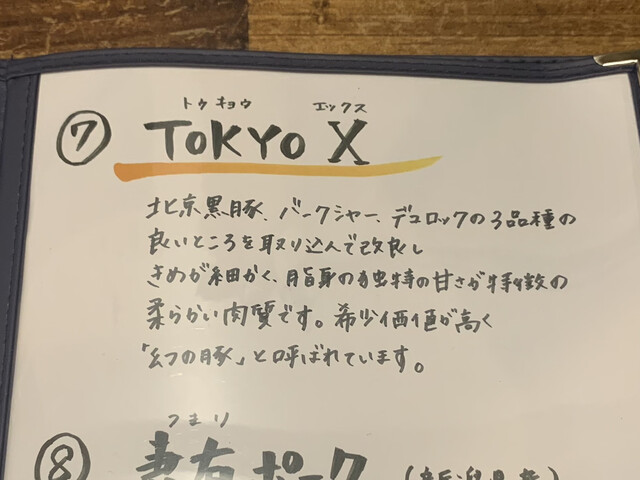 トウキョウ エックス
⑦ TOKYO X
北京黒豚、バークシャー、デュロックの3品種の
良いところを取り込んで改良し
きめが細かく、脂身の独特の甘さが特徴の
柔らかい肉質です。希少価値が高く
「幻の豚」と呼ばれています。
つまり
⑧ 妻有ポーク (新潟県産)